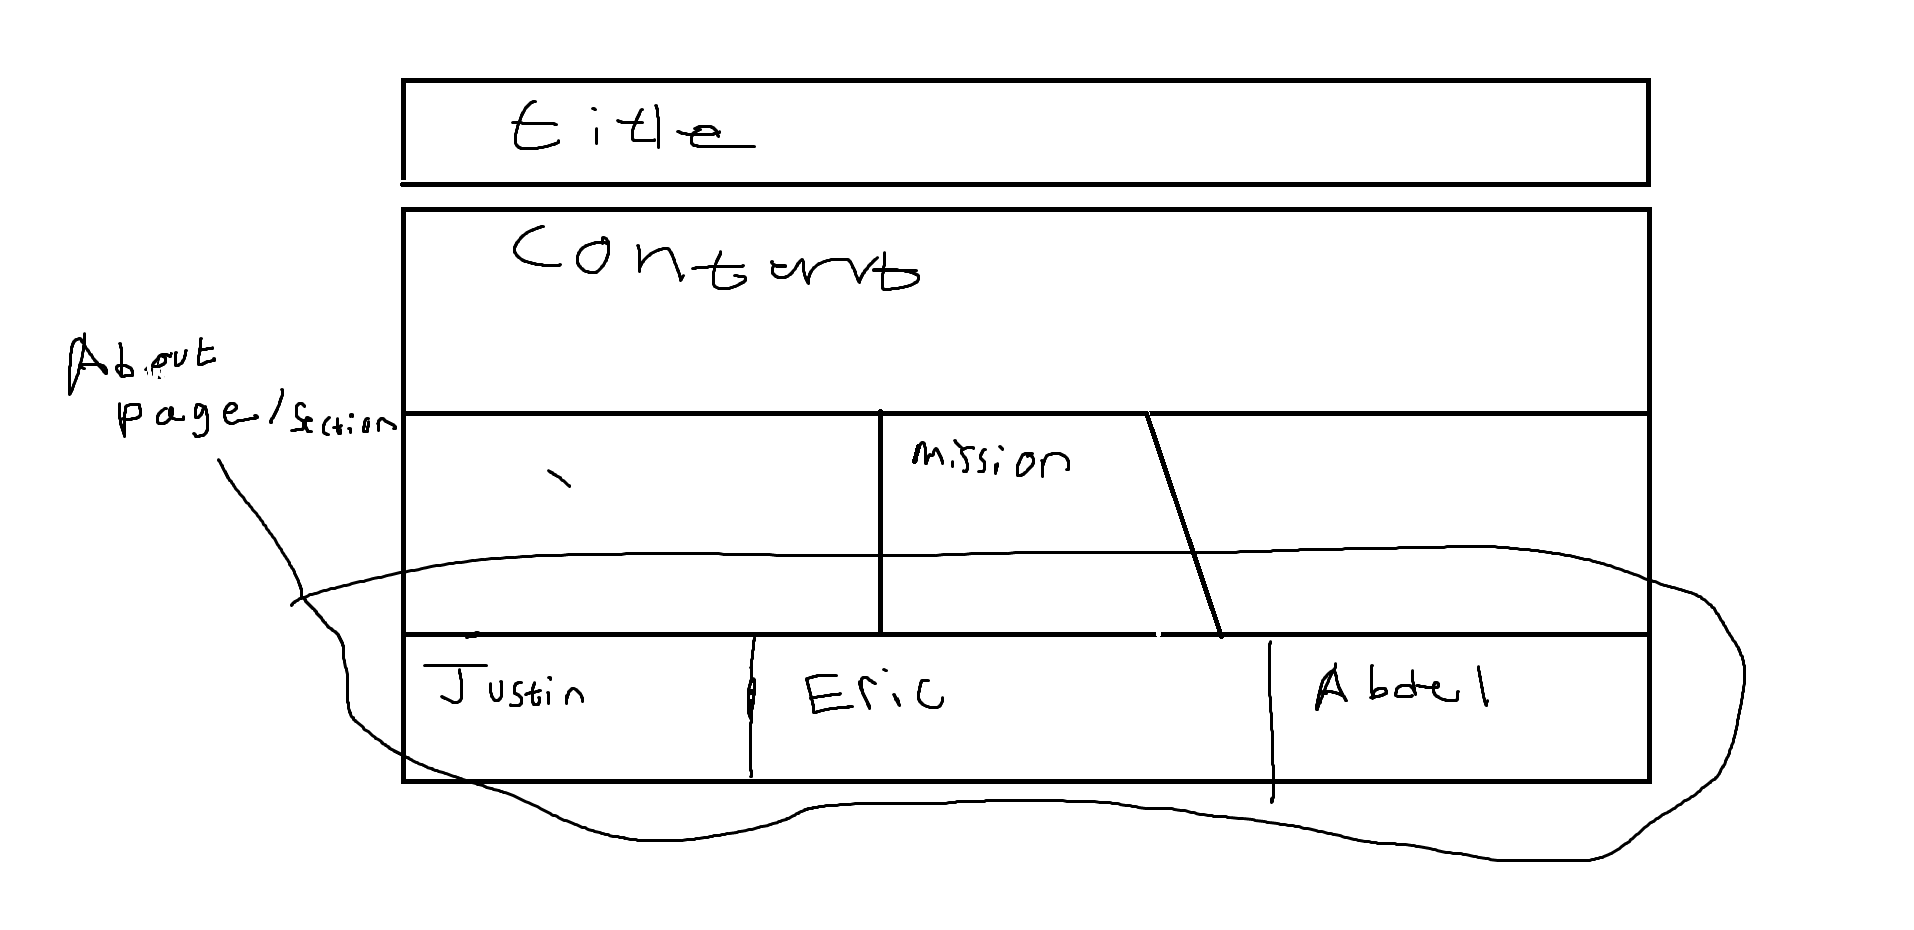 title
Content
About
page/section
mission
Justin
Eric
Abdel